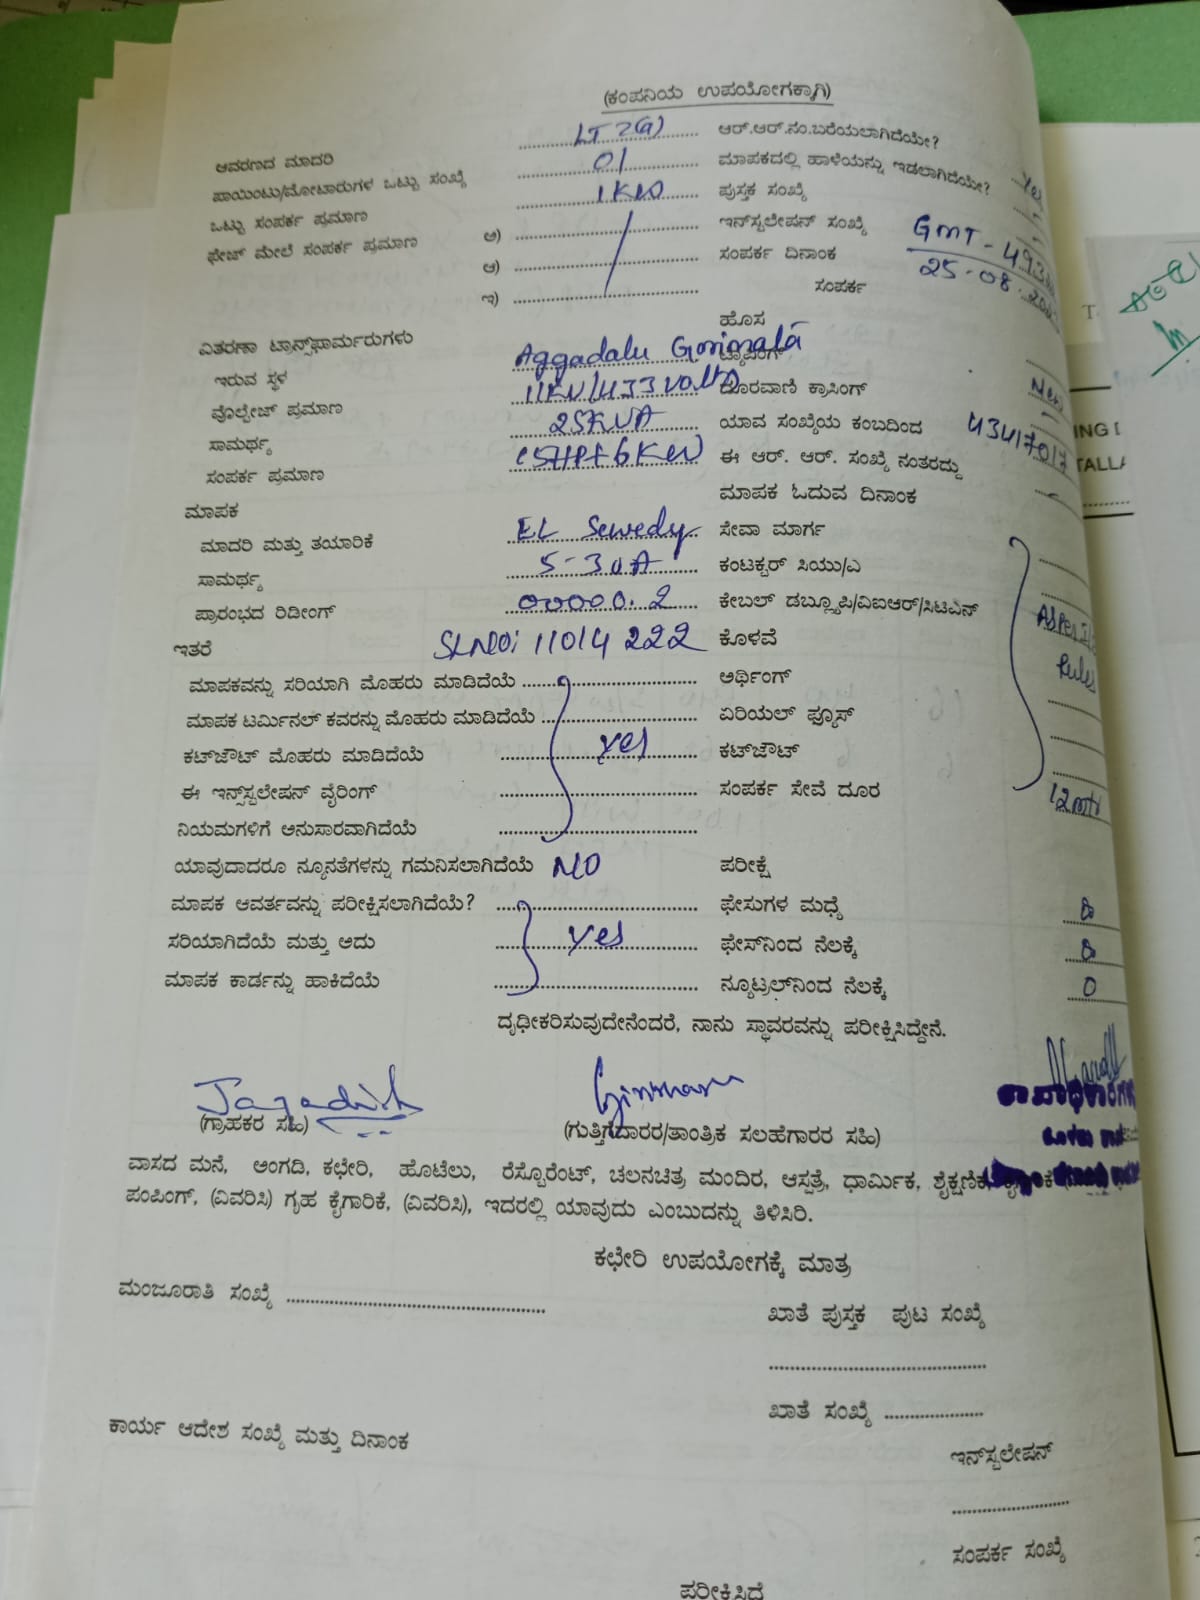 (ಕಂಪನಿಯ ಉಪಯೋಗಕ್ಕಾಗಿ)
ಆವರಣದ ಮಾದರಿ LT 2(a) ಆರ್.ಆರ್.ನಂ.ಬರೆಯಲಾಗಿದೆಯೇ?
ಪಾಯಿಂಟು/ಮೋಟಾರುಗಳ ಒಟ್ಟು ಸಂಖ್ಯೆ 01 ಮಾಪಕದಲ್ಲಿ ಹಾಳೆಯನ್ನು ಇಡಲಾಗಿದೆಯೇ?
ಒಟ್ಟು ಸಂಪರ್ಕ ಪ್ರಮಾಣ 1KW ಪುಸ್ತಕ ಸಂಖ್ಯೆ
ಫೇಜ್ ಮೇಲೆ ಸಂಪರ್ಕ ಪ್ರಮಾಣ ಅ) ಇನ್‌ಸ್ಟಲೇಷನ್ ಸಂಖ್ಯೆ GMT-
ಆ) ಸಂಪರ್ಕ ದಿನಾಂಕ 25-08.
ಇ) ಸಂಪರ್ಕ
ವಿತರಣಾ ಟ್ರಾನ್ಸ್‌ಫಾರ್ಮರುಗಳು ಹೊಸ
ಇರುವ ಸ್ಥಳ Aggadalu ಟ್ಯಾಪಿಂಗ್
ವೋಲ್ಟೇಜ್ ಪ್ರಮಾಣ 11KV/433Volts ದೂರವಾಣಿ ಕ್ರಾಸಿಂಗ್
ಸಾಮರ್ಥ್ಯ 25KVA ಯಾವ ಸಂಖ್ಯೆಯ ಕಂಬದಿಂದ
ಸಂಪರ್ಕ ಪ್ರಮಾಣ ಈ ಆರ್. ಆರ್. ಸಂಖ್ಯೆ ನಂತರದ್ದು 43417017
ಮಾಪಕ ಮಾಪಕ ಓದುವ ದಿನಾಂಕ
ಮಾದರಿ ಮತ್ತು ತಯಾರಿಕೆ EL Sewedy ಸೇವಾ ಮಾರ್ಗ
ಸಾಮರ್ಥ್ಯ 5-30A ಕಂಟಕ್ಟರ್ ಸಿಯು/ಎ
ಪ್ರಾರಂಭದ ರಿಡೀಂಗ್ 00000.2 ಕೇಬಲ್ ಡಬ್ಲ್ಯೂಪಿ/ವಿಐಆರ್/ಸಿಟಿಎಸ್
ಇತರೆ SLNO: 11014222 ಕೊಳವೆ
ಮಾಪಕವನ್ನು ಸರಿಯಾಗಿ ಮೊಹರು ಮಾಡಿದೆಯೆ ಅರ್ಥಿಂಗ್
ಮಾಪಕ ಟರ್ಮಿನಲ್ ಕವರನ್ನು ಮೊಹರು ಮಾಡಿದೆಯೆ ಏರಿಯಲ್ ಫ್ಯೂಸ್
ಕಟ್‌ಔಟ್ ಮೊಹರು ಮಾಡಿದೆಯೆ yes ಕಟ್‌ಔಟ್
ಈ ಇನ್ಸ್‌ಸ್ಟಲೇಷನ್ ವೈರಿಂಗ್ ಸಂಪರ್ಕ ಸೇವೆ ದೂರ 12mtr
ನಿಯಮಗಳಿಗೆ ಅನುಸಾರವಾಗಿದೆಯೆ
ಯಾವುದಾದರೂ ನ್ಯೂನತೆಗಳನ್ನು ಗಮನಿಸಲಾಗಿದೆಯೆ NO ಪರೀಕ್ಷೆ
ಮಾಪಕ ಆವರ್ತವನ್ನು ಪರೀಕ್ಷಿಸಲಾಗಿದೆಯೆ? ಫೇಸುಗಳ ಮಧ್ಯೆ
ಸರಿಯಾಗಿದೆಯೆ ಮತ್ತು ಅದು yes ಫೇಸ್‌ನಿಂದ ನೆಲಕ್ಕೆ
ಮಾಪಕ ಕಾರ್ಡನ್ನು ಹಾಕಿದೆಯೆ ನ್ಯೂಟ್ರಲ್‌ನಿಂದ ನೆಲಕ್ಕೆ 0
ದೃಢೀಕರಿಸುವುದೇನೆಂದರೆ, ನಾನು ಸ್ಥಾವರವನ್ನು ಪರೀಕ್ಷಿಸಿದ್ದೇನೆ.
Jagadish
(ಗ್ರಾಹಕರ ಸಹಿ) (ಗುತ್ತಿಗೆದಾರರ/ತಾಂತ್ರಿಕ ಸಲಹೆಗಾರರ ಸಹಿ)
ವಾಸದ ಮನೆ, ಅಂಗಡಿ, ಕಛೇರಿ, ಹೊಟೆಲು, ರೆಸ್ಟೋರೆಂಟ್, ಚಲನಚಿತ್ರ ಮಂದಿರ, ಆಸ್ಪತ್ರೆ, ಧಾರ್ಮಿಕ, ಶೈಕ್ಷಣಿಕ,
ಪಂಪಿಂಗ್, (ವಿವರಿಸಿ) ಗೃಹ ಕೈಗಾರಿಕೆ, (ವಿವರಿಸಿ), ಇದರಲ್ಲಿ ಯಾವುದು ಎಂಬುದನ್ನು ತಿಳಿಸಿರಿ.
ಕಛೇರಿ ಉಪಯೋಗಕ್ಕೆ ಮಾತ್ರ
ಮಂಜೂರಾತಿ ಸಂಖ್ಯೆ
ಖಾತೆ ಪುಸ್ತಕ ಪುಟ ಸಂಖ್ಯೆ
ಖಾತೆ ಸಂಖ್ಯೆ
ಕಾರ್ಯ ಆದೇಶ ಸಂಖ್ಯೆ ಮತ್ತು ದಿನಾಂಕ
ಇನ್‌ಸ್ಟಲೇಷನ್
ಸಂಪರ್ಕ ಸಂಖ್ಯೆ
ಪರೀಕ್ಷಿಸಿದೆ